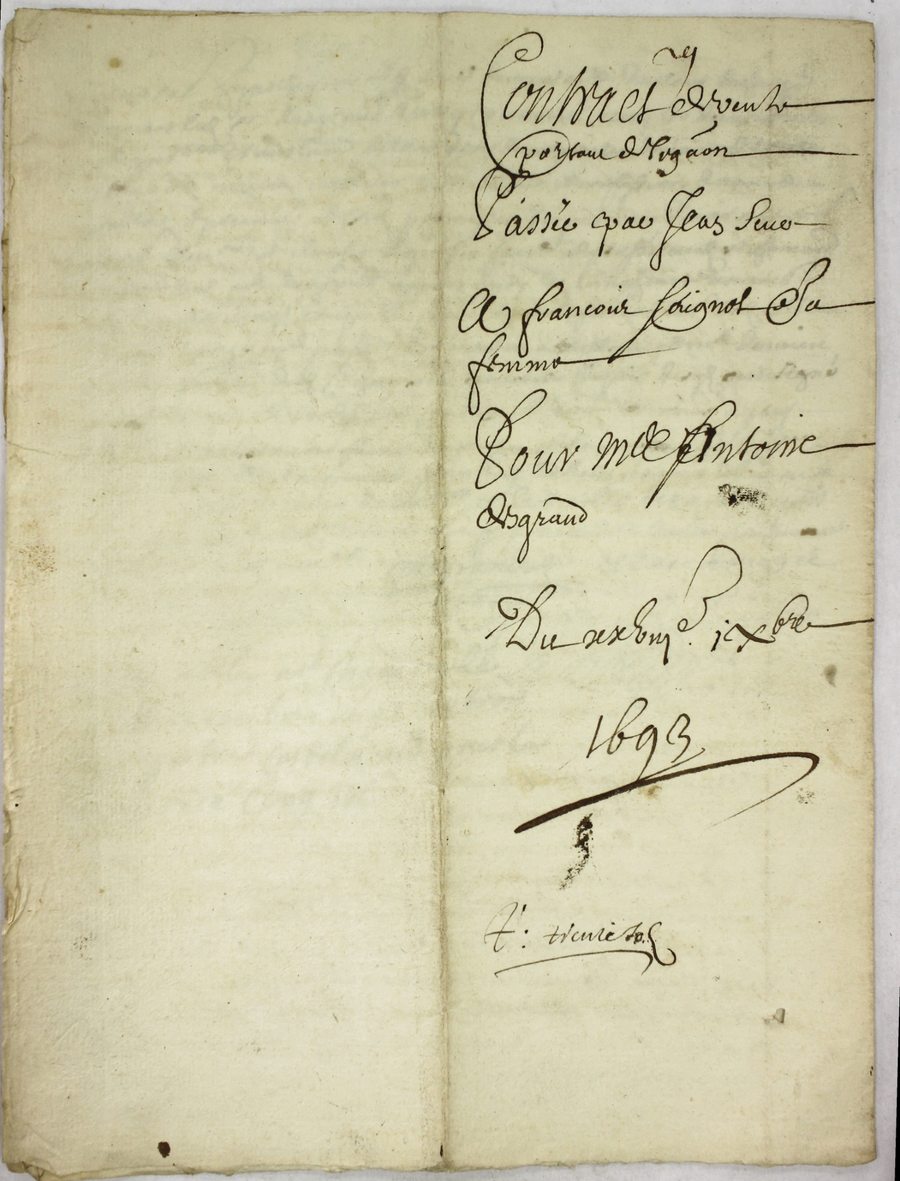 Contract de vente
portant
Passée par Jean
A francois Soignot & sa
femme
Pour Me Antoine
Degrand
Du xxviije xbre
1693
t': trente so.